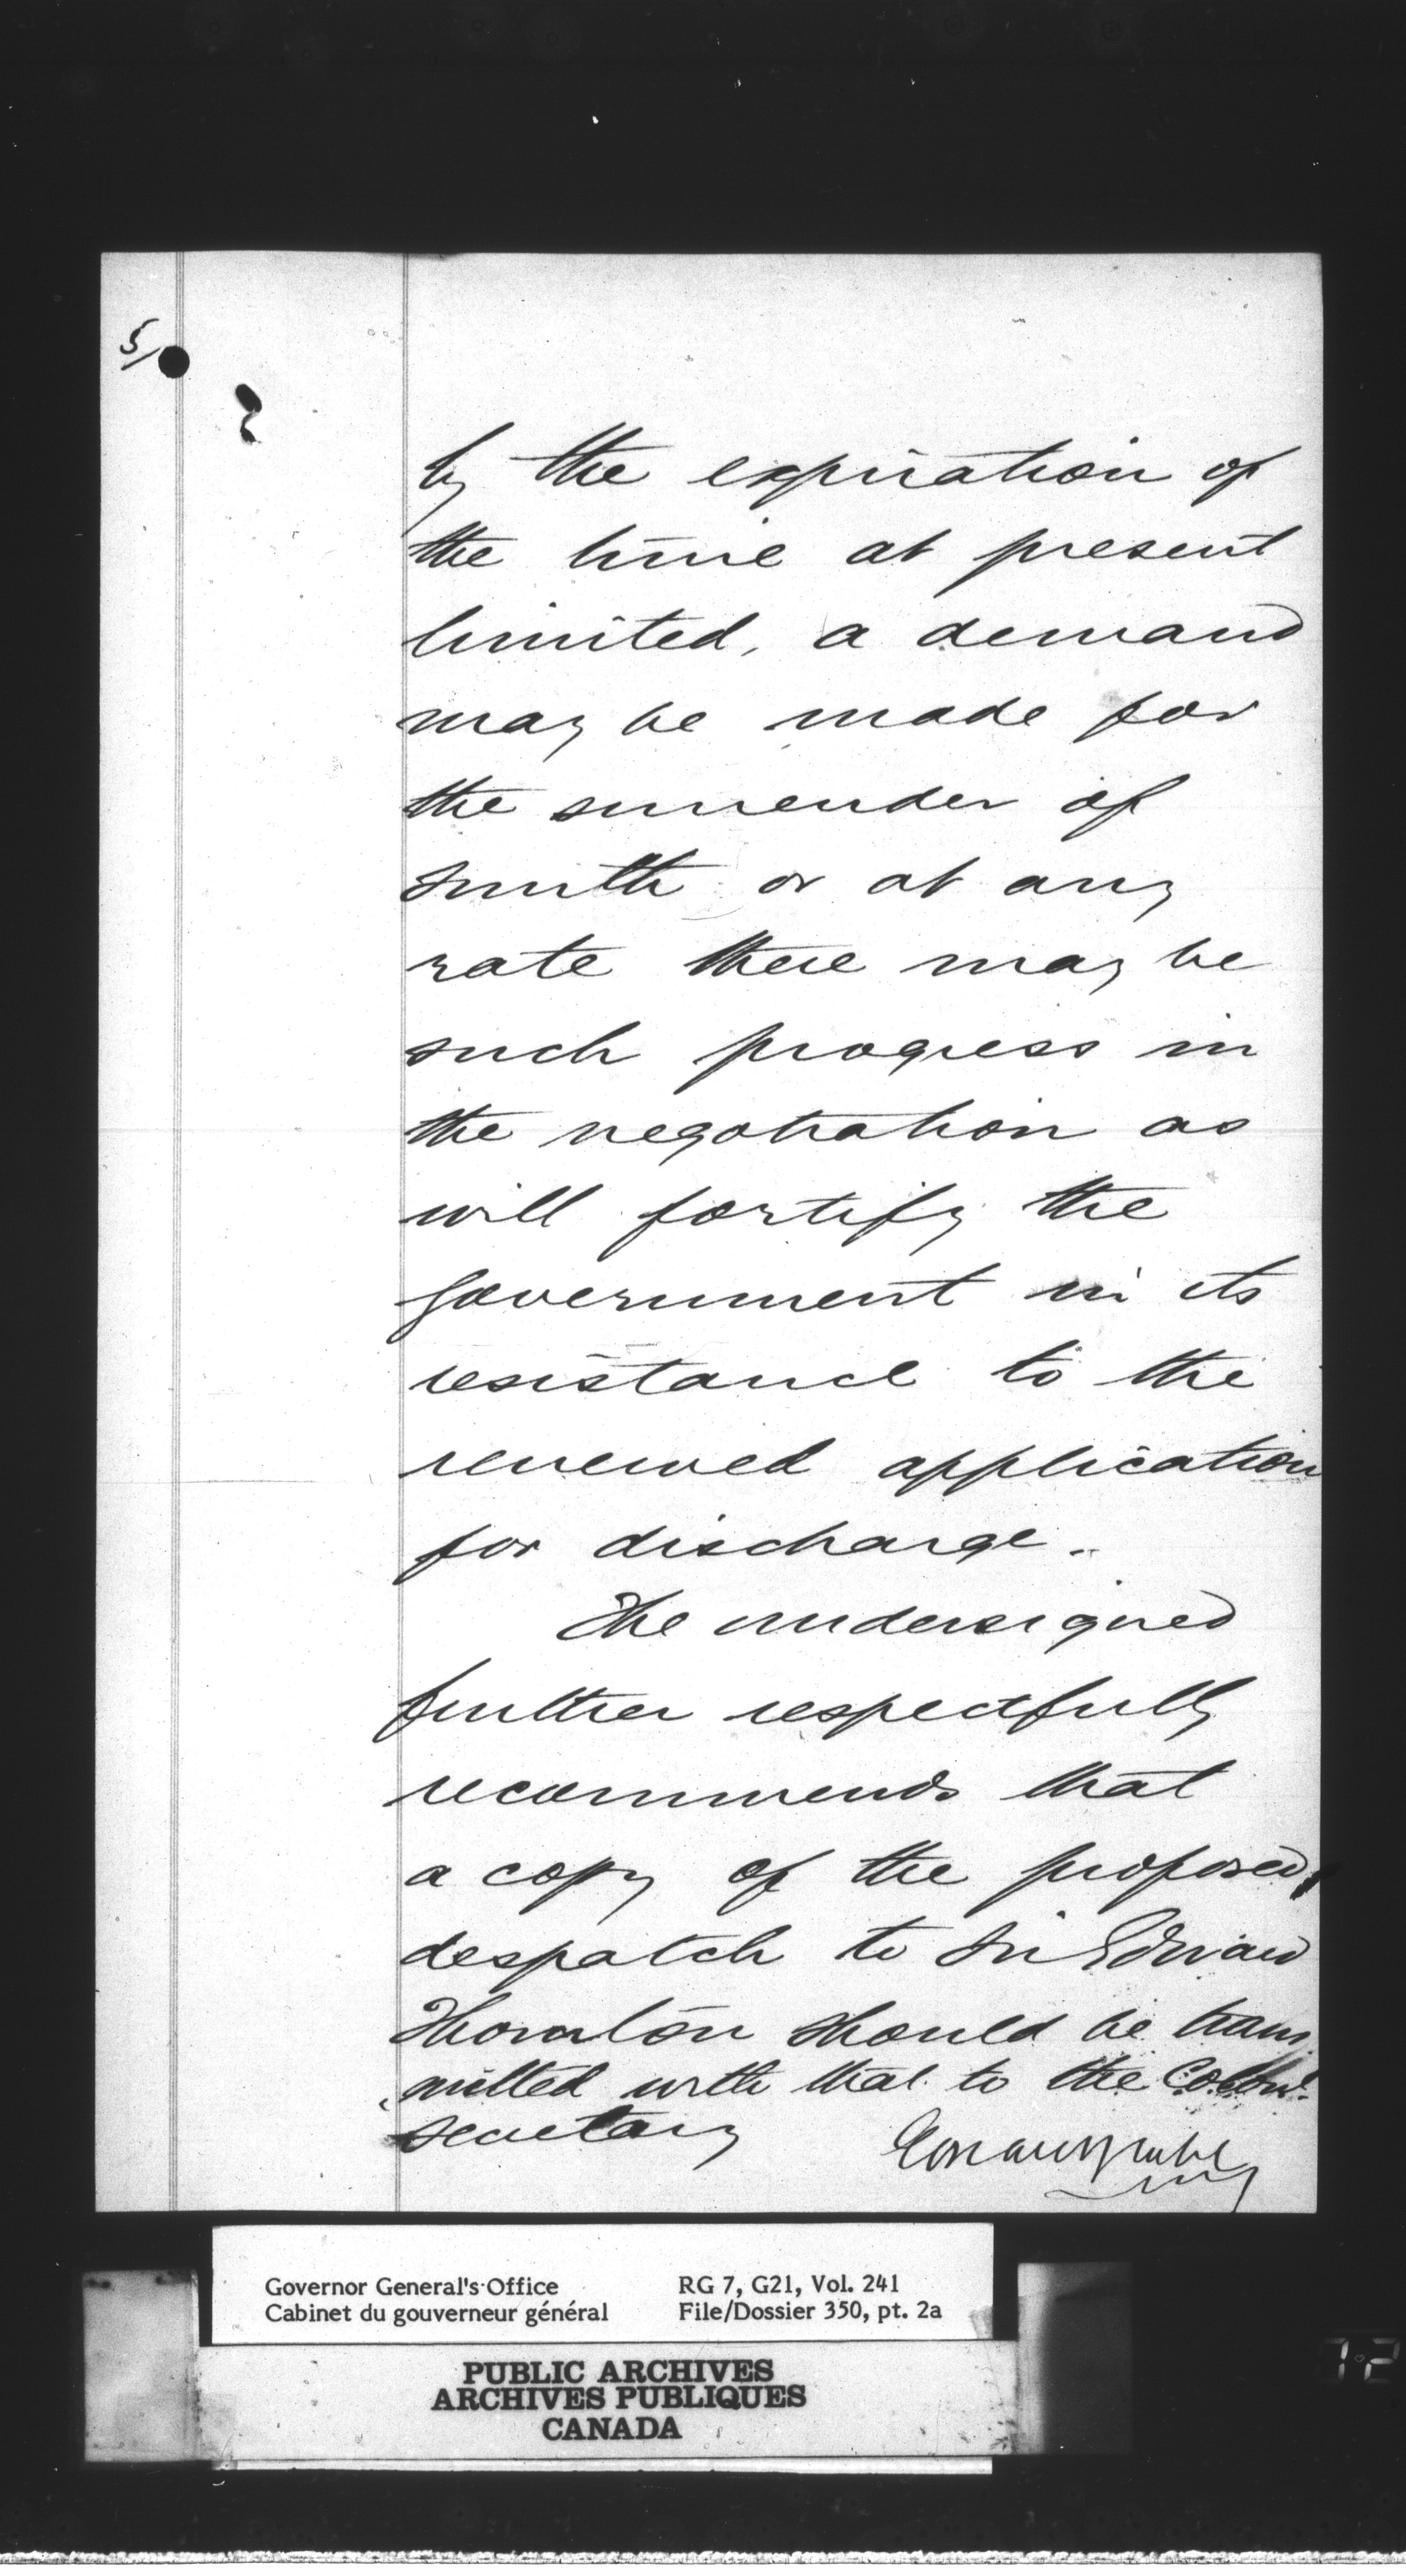 5/
by the expiration of
the time at present
limited, a demand
may be made for
the surrender of
Smith or at any
rate there may be
such progress in
the negotiation as
will fortify the
Government in its
resistance to the
renewed application
for discharge.
The undersigned
further respectfully
recommends that
a copy of the proposed
despatch to Sir Edward
Thornton should be trans
mitted with that to the Colonl.
Secretary
Edward Blake
Governor General's Office
Cabinet du gouverneur général
RG 7, G21, Vol. 241
File/Dossier 350, pt. 2a
PUBLIC ARCHIVES
ARCHIVES PUBLIQUES
CANADA